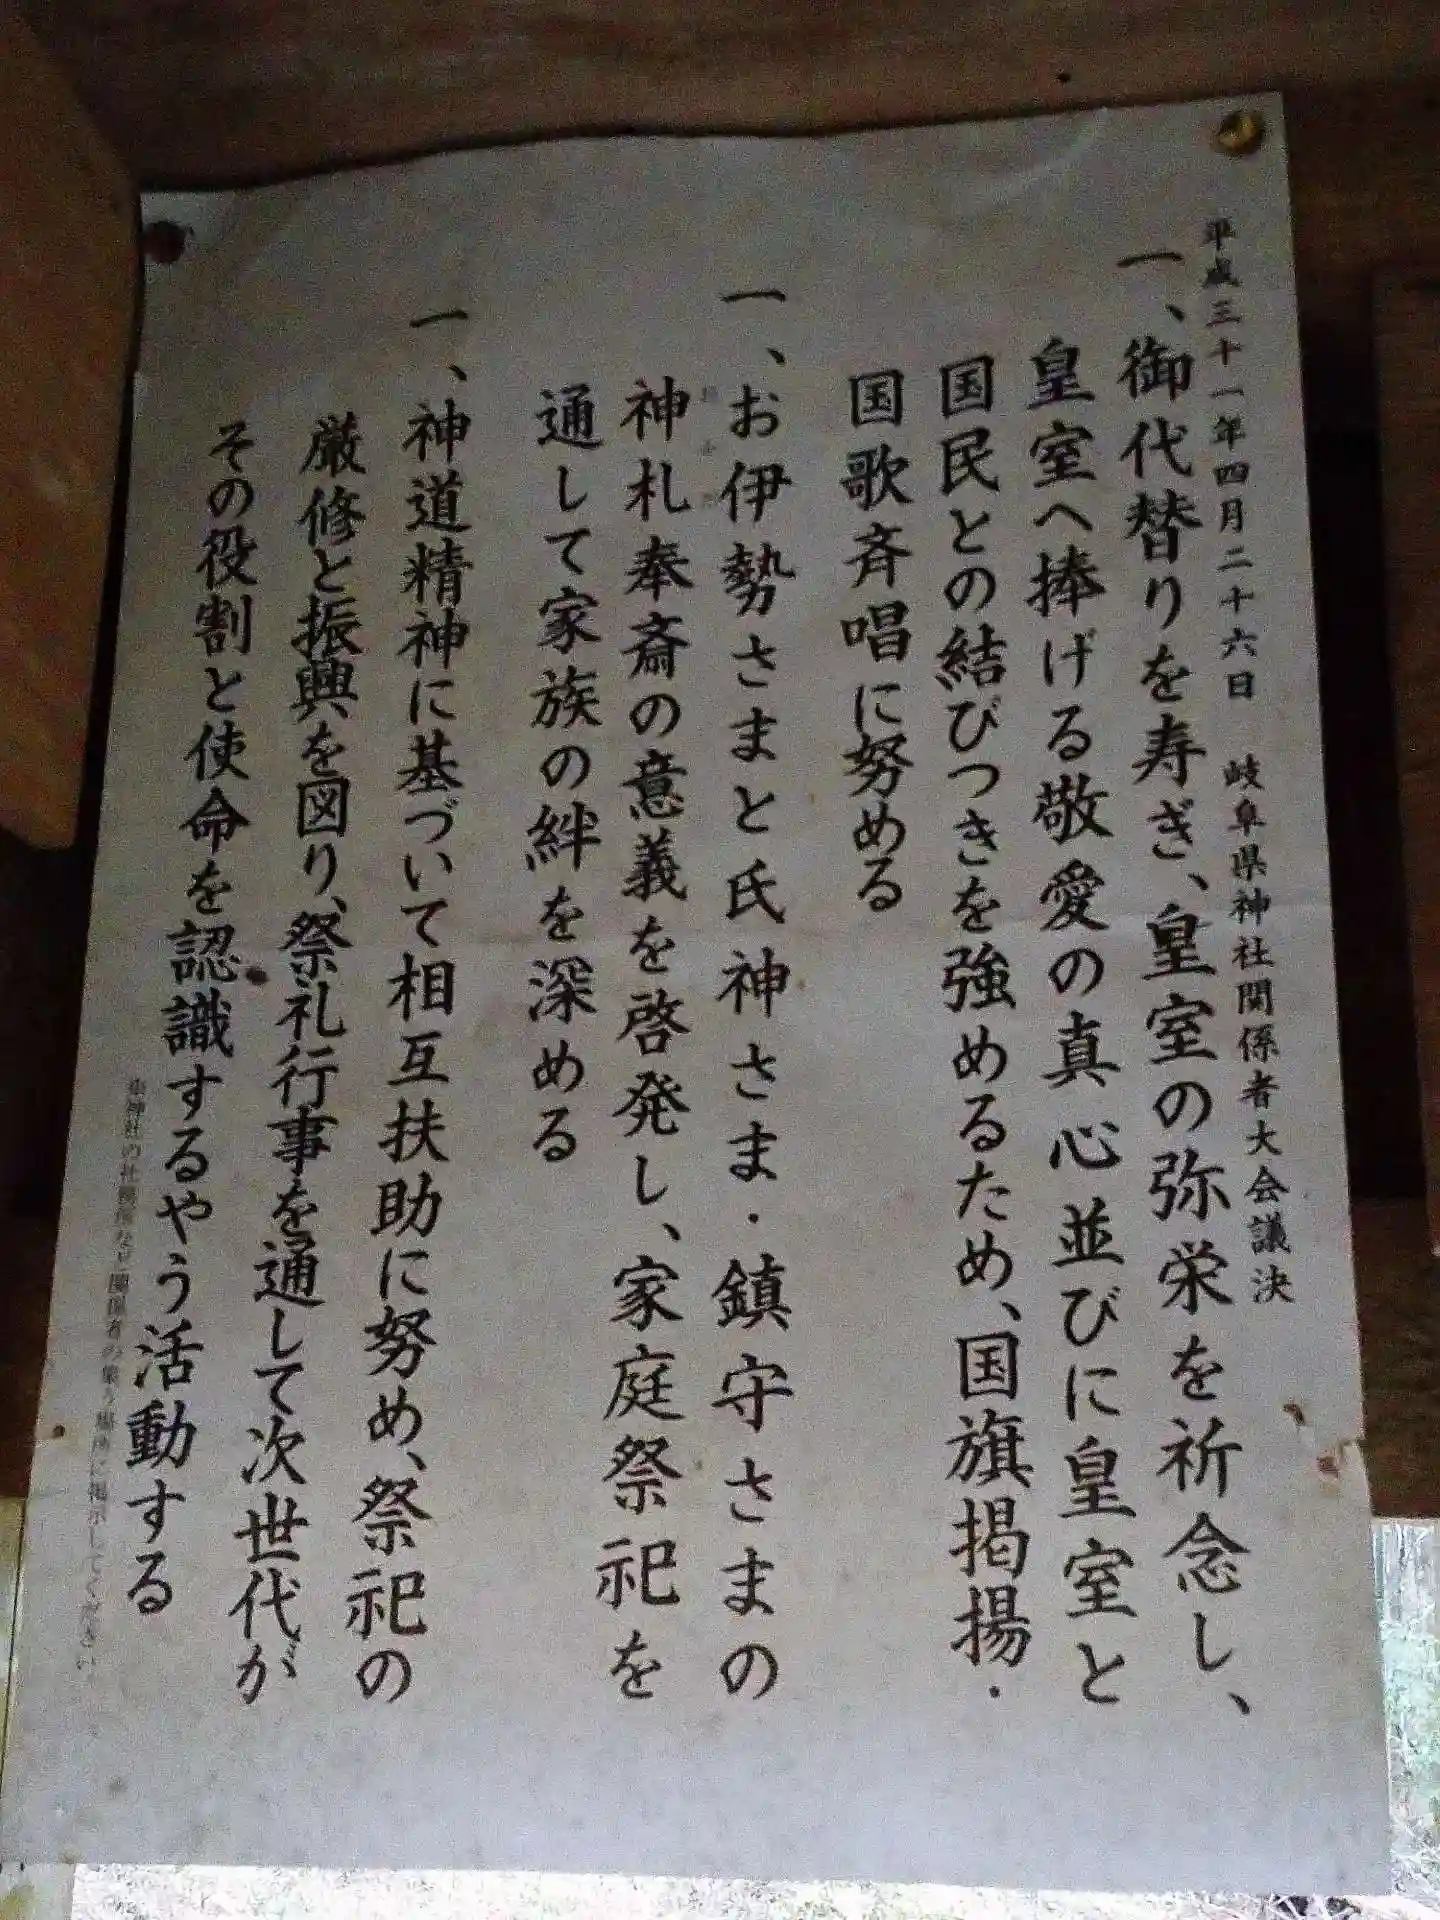 平成三十一年四月二十六日　岐阜県神社関係者大会議決
一、御代替りを寿ぎ、皇室の弥栄を祈念し、
皇室へ捧げる敬愛の真心並びに皇室と
国民との結びつきを強めるため、国旗掲揚・
国歌斉唱に努める
一、お伊勢さまと氏神さま・鎮守さまの
神札奉斎の意義を啓発し、家庭祭祀を
通して家族の絆を深める
一、神道精神に基づいて相互扶助に努め、祭祀の
厳修と振興を図り、祭礼行事を通して次世代が
その役割と使命を認識するやう活動する
神社の社務所など関係者の集う場所に掲示してください